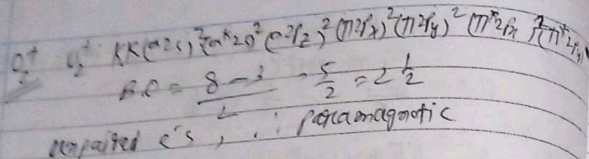 O₂⁺ O₂⁺ KK(σ2s)²(σ*2s)²(σ2Pz)²(π2Px)²(π2Py)²(π*2Px)²(π*2Py)
B.O = 8-3/2 = 5/2 = 2 1/2
unpaired e's, ∴ paramagnetic